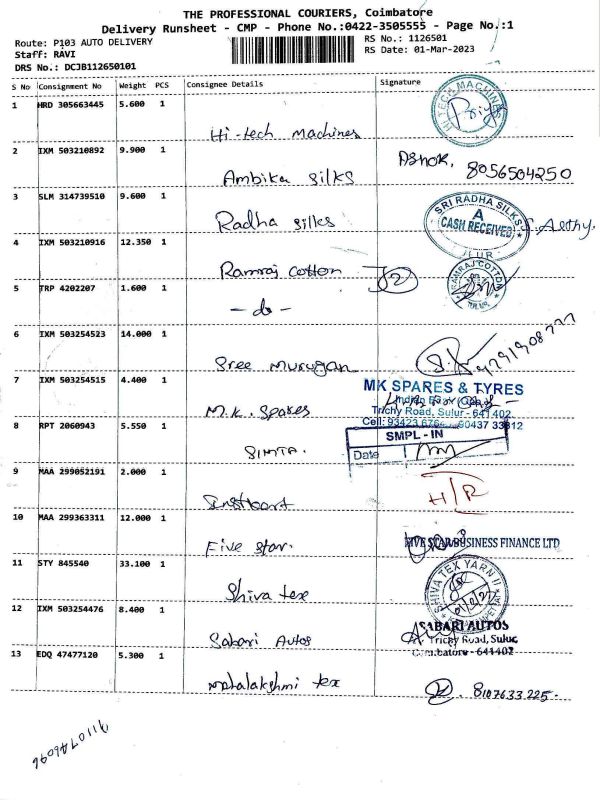 THE PROFESSIONAL COURIERS, Coimbatore
Delivery Runsheet - CMP - Phone No.:0422-3505555 - Page No.:1
Route: P103 AUTO DELIVERY
Staff: RAVI
DRS No.: DCJB112650101
RS No.: 1126501
RS Date: 01-Mar-2023
S No Consignment No Weight PCS Consignee Details Signature
1 HRD 305663445 5.600 1
Hi-tech Machines
HI TECH MACHINES
2 IXM 503210892 9.900 1
Ambika silks
Ashok, 8056504250
3 SLM 314739510 9.600 1
Radha silks
SRI RADHA SILKS
A
CASH RECEIVED
4 IXM 503210916 12.350 1
Ramraj cotton
2
RAMRAJ COTTON
5 TRP 4202207 1.600 1
- do -
6 IXM 503254523 14.000 1
Sree Murugan
7 IXM 503254515 4.400 1
M.K. Spares
MK SPARES & TYRES
Trichy Road, Sulur - 641 402
8 RPT 2060943 5.550 1
SIMTA.
SMPL - IN
Date
9 MAA 299052191 2.000 1
H/R
10 MAA 299363311 12.000 1
Five star.
FIVE STAR BUSINESS FINANCE LTD
11 STY 845540 33.100 1
Shiva tex
SHIVA TEX YARN
12 IXM 503254476 8.400 1
Sabari Autos
SABARI AUTOS
Trichy Road, Sulur
Coimbatore - 641402
13 EDQ 47477120 5.300 1
Mahalakshmi tex
8107633225